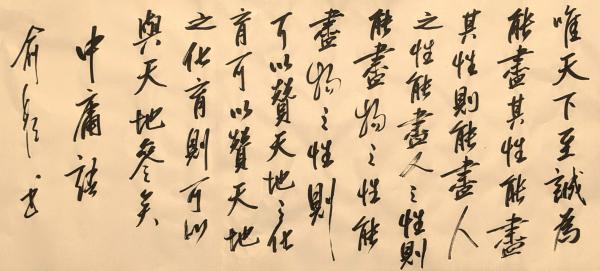 唯天下至誠為
能盡其性能盡
其性則能盡人
之性能盡人之性則
能盡物之性能
盡物之性則
可以贊天地之化
育可以贊天地
之化育則可以
與天地參矣
中庸語
俞 書